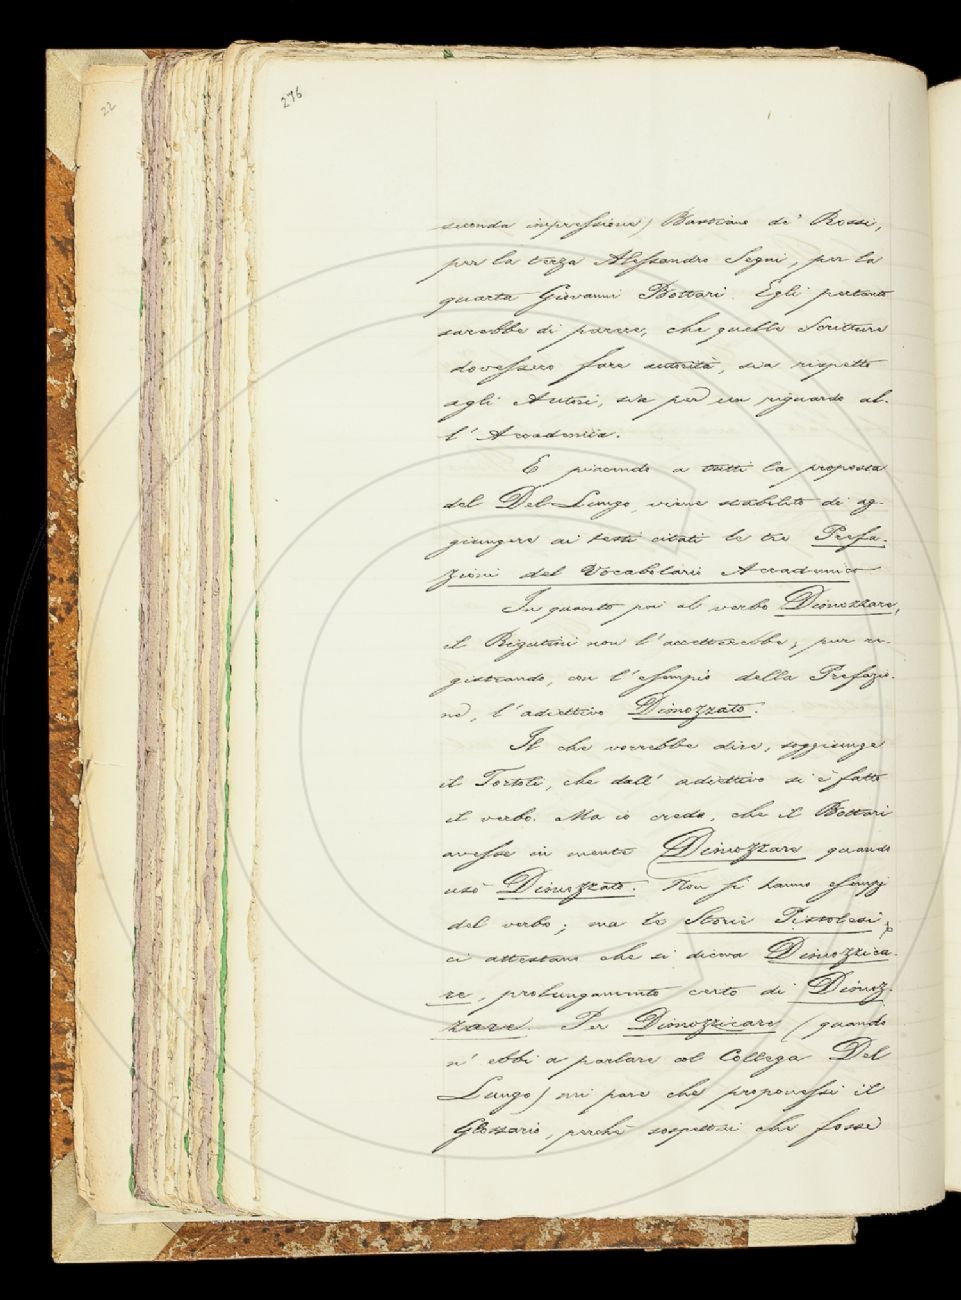 22
276
seconda impressione) Bastiano de' Rossi,
per la terza Alessandro Segni, per la
quarta Giovanni Bottari. Egli pertanto
sarebbe di parere, che quelle Scritture
dovessero fare autorità, sia rispetto
agli Autori, sia per un riguardo al-
l'Accademia.
E piacendo a tutti la proposta
del Del-Lungo, viene stabilito di ag-
giungere ai testi citati le tre Prefa-
zioni del Vocabolario Accademico
In quanto poi al verbo Dimozzare,
il Rigutini non l'accetterebbe, pur re-
gistrando, con l'esempio della Prefazio-
ne, l'adiettivo Dimozzato.
Il che vorrebbe dire, soggiunge
il Tortoli, che dall'adiettivo si è fatto
il verbo. Ma io credo, che il Bottari
avesse in mente Dimozzare quando
usò Dimozzato. Non si hanno esempj
del verbo; ma le Storie Pistolesi
ci attestano che si diceva Dimozzica-
re, prolungamento certo di Dimoz-
zare. Per Dimozzicare (quando
n'ebbi a parlare al Collega Del
Lungo) mi pare che proponessi il
Glossario, perchè sospettai che fosse